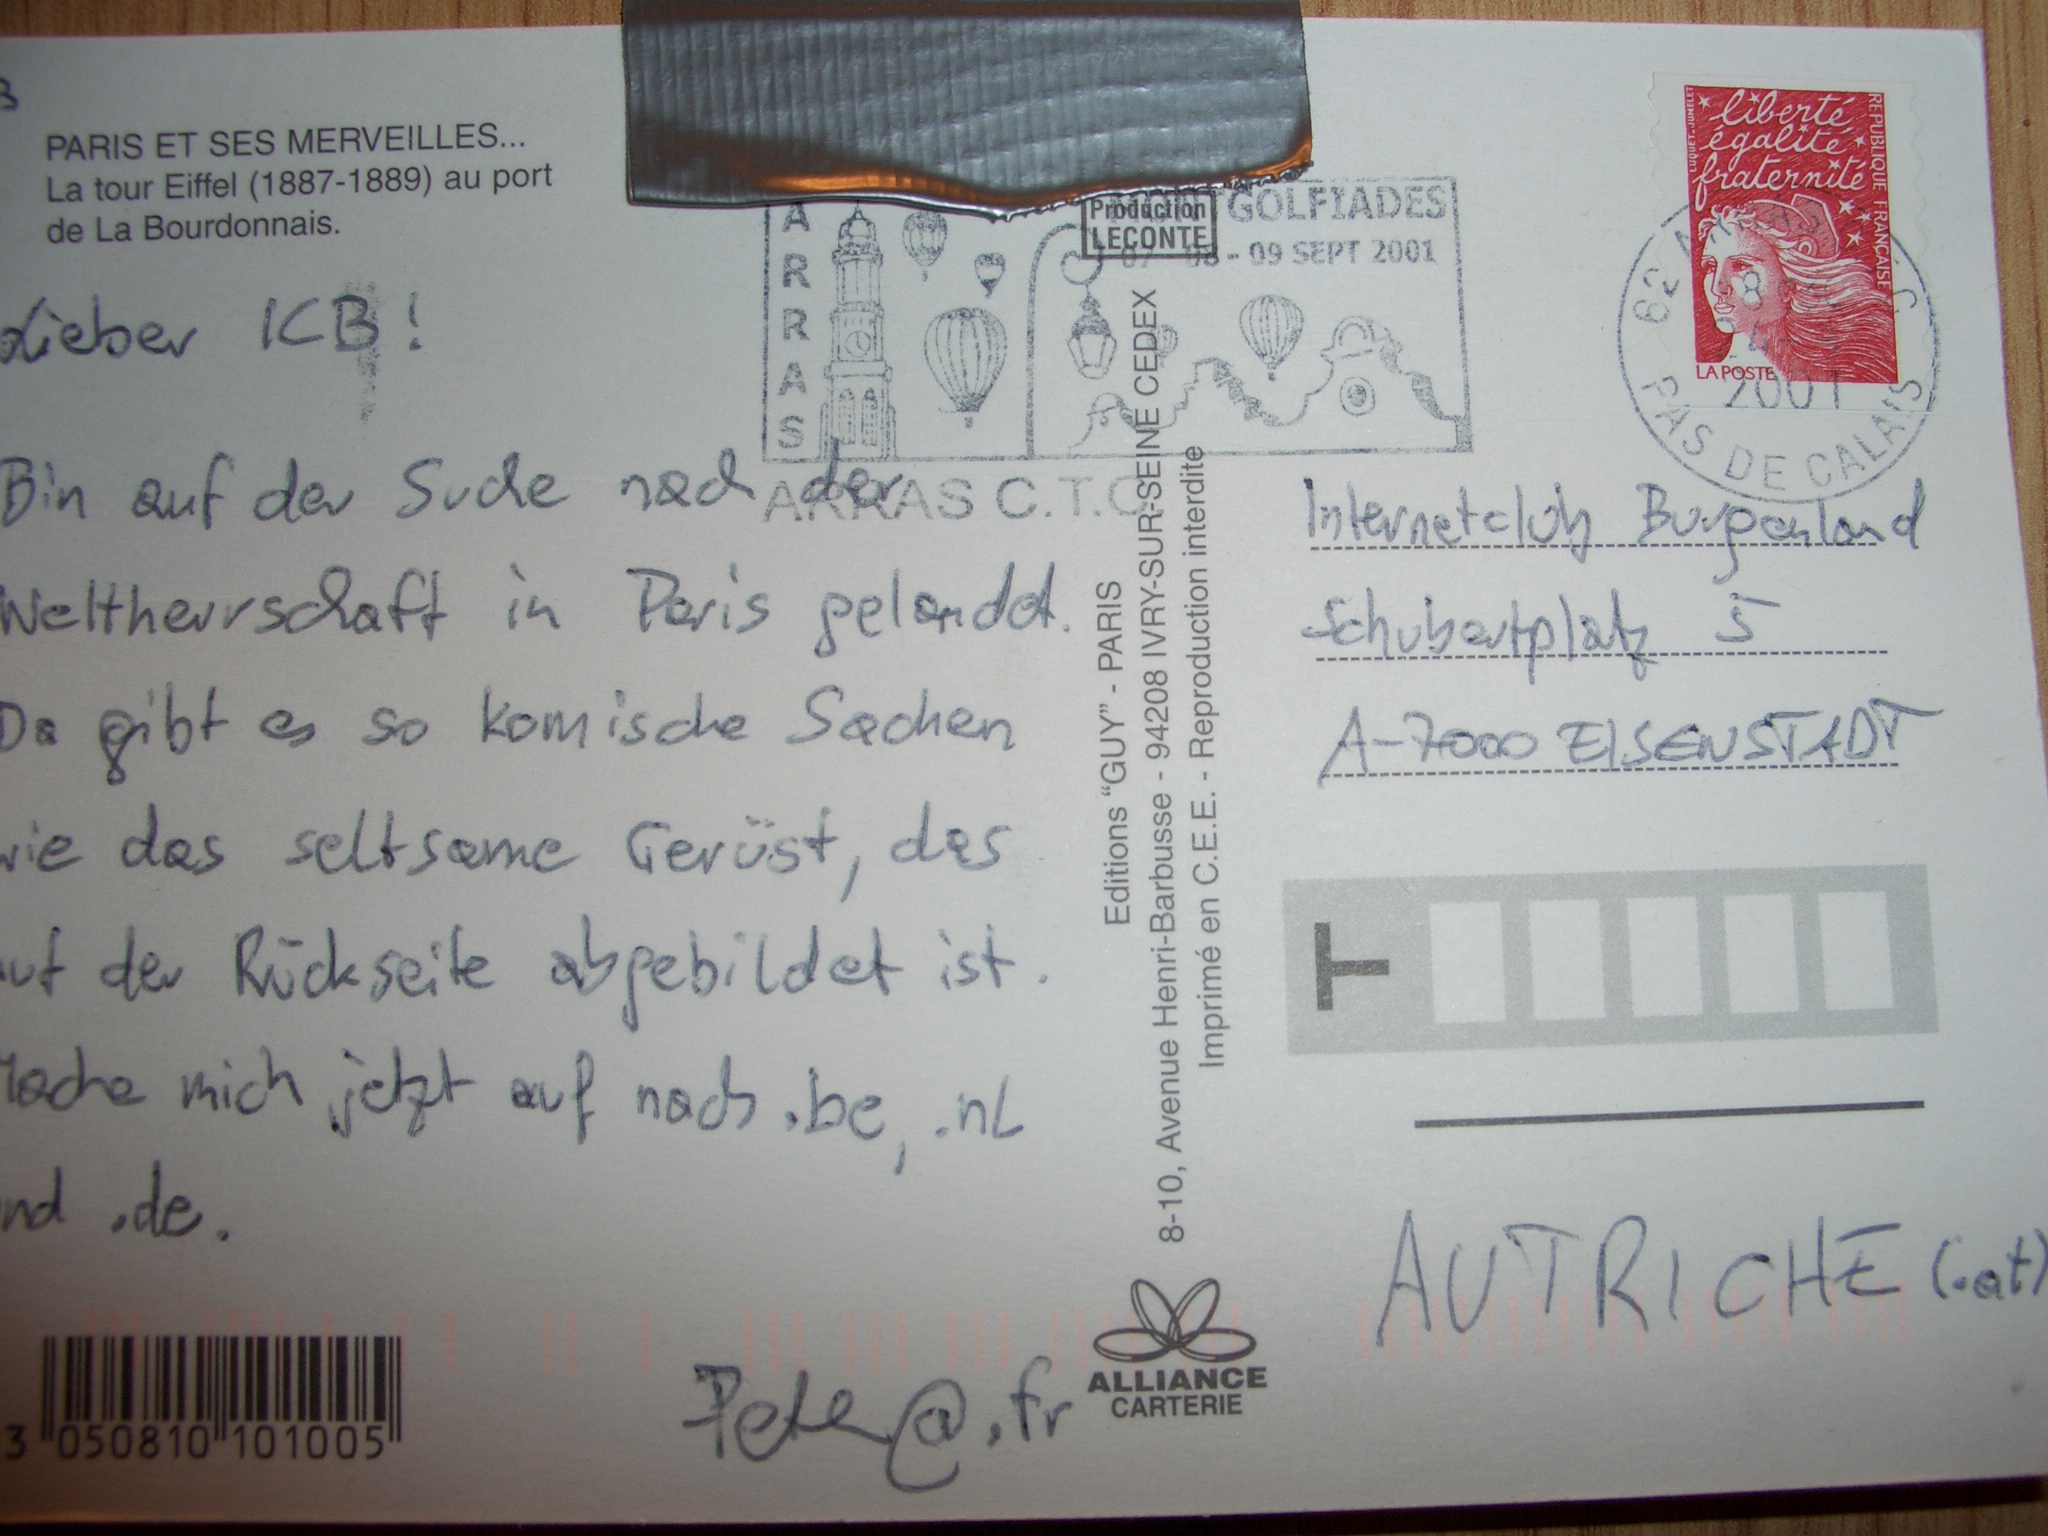 PARIS ET SES MERVEILLES...
La tour Eiffel (1887-1889) au port
de La Bourdonnais.
Lieber ICB!
Bin auf der Suche nach der
Weltherrschaft in Paris gelandet.
Da gibt es so komische Sachen
wie das seltsame Gerüst, das
auf der Rückseite abgebildet ist.
Mache mich jetzt auf nach .be, .nl
und .de.
Peter@.fr
3 050810 101005
Production
LECONTE
ARRAS
GOLFIADES
- 09 SEPT 2001
ARRAS C.T.C
Editions "GUY" - PARIS
8-10, Avenue Henri-Barbusse - 94208 IVRY-SUR-SEINE CEDEX
Imprimé en C.E.E. - Reproduction interdite
ALLIANCE
CARTERIE
liberté
égalité
fraternité
REPUBLIQUE FRANÇAISE
LUQUET-JUMELET
LA POSTE
62
2001
PAS DE CALAIS
Internetclub Burgenland
Schubertplatz 5
A-7000 EISENSTADT
T
AUTRICHE (.at)